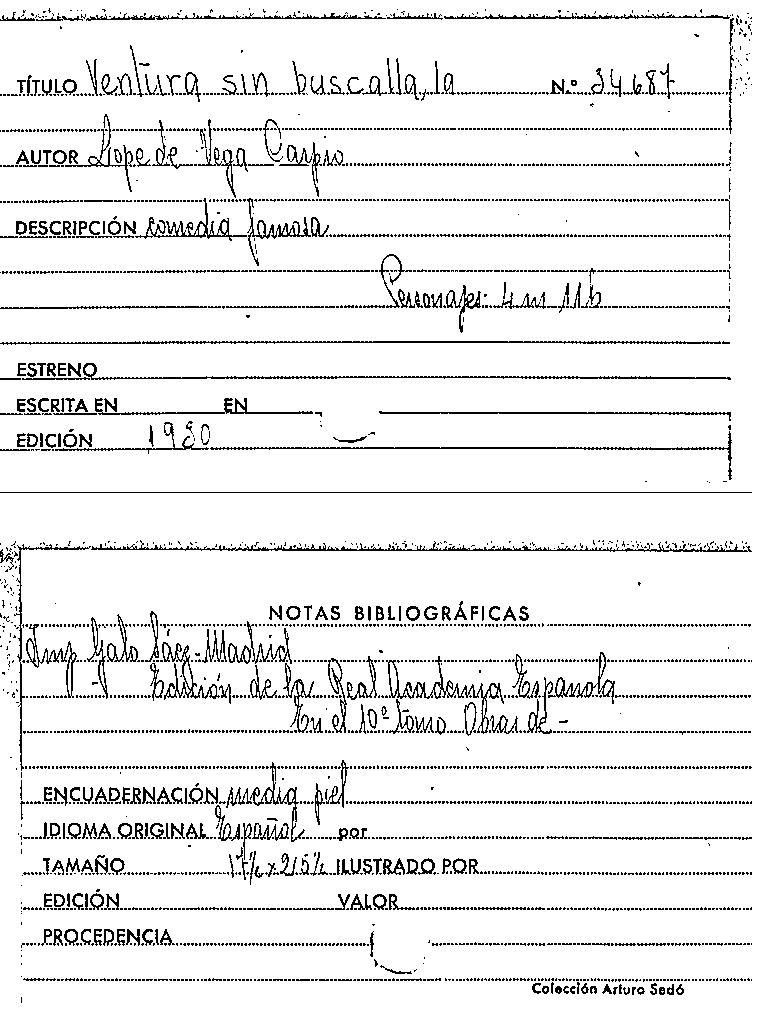 TÍTULO Ventura sin buscalla, la N.º 34687
AUTOR Lope de Vega Carpio
DESCRIPCIÓN comedia famosa
Personajes: 4 m 11 h
ESTRENO
ESCRITA EN EN
EDICIÓN 1930
NOTAS BIBLIOGRÁFICAS
Imp Galo Sáez-Madrid
Edición de la Real Academia Española
En el 10º tomo Obras de -
ENCUADERNACIÓN media piel
IDIOMA ORIGINAL Español por
TAMAÑO ILUSTRADO POR
EDICIÓN VALOR
PROCEDENCIA
Colección Arturo Sedó